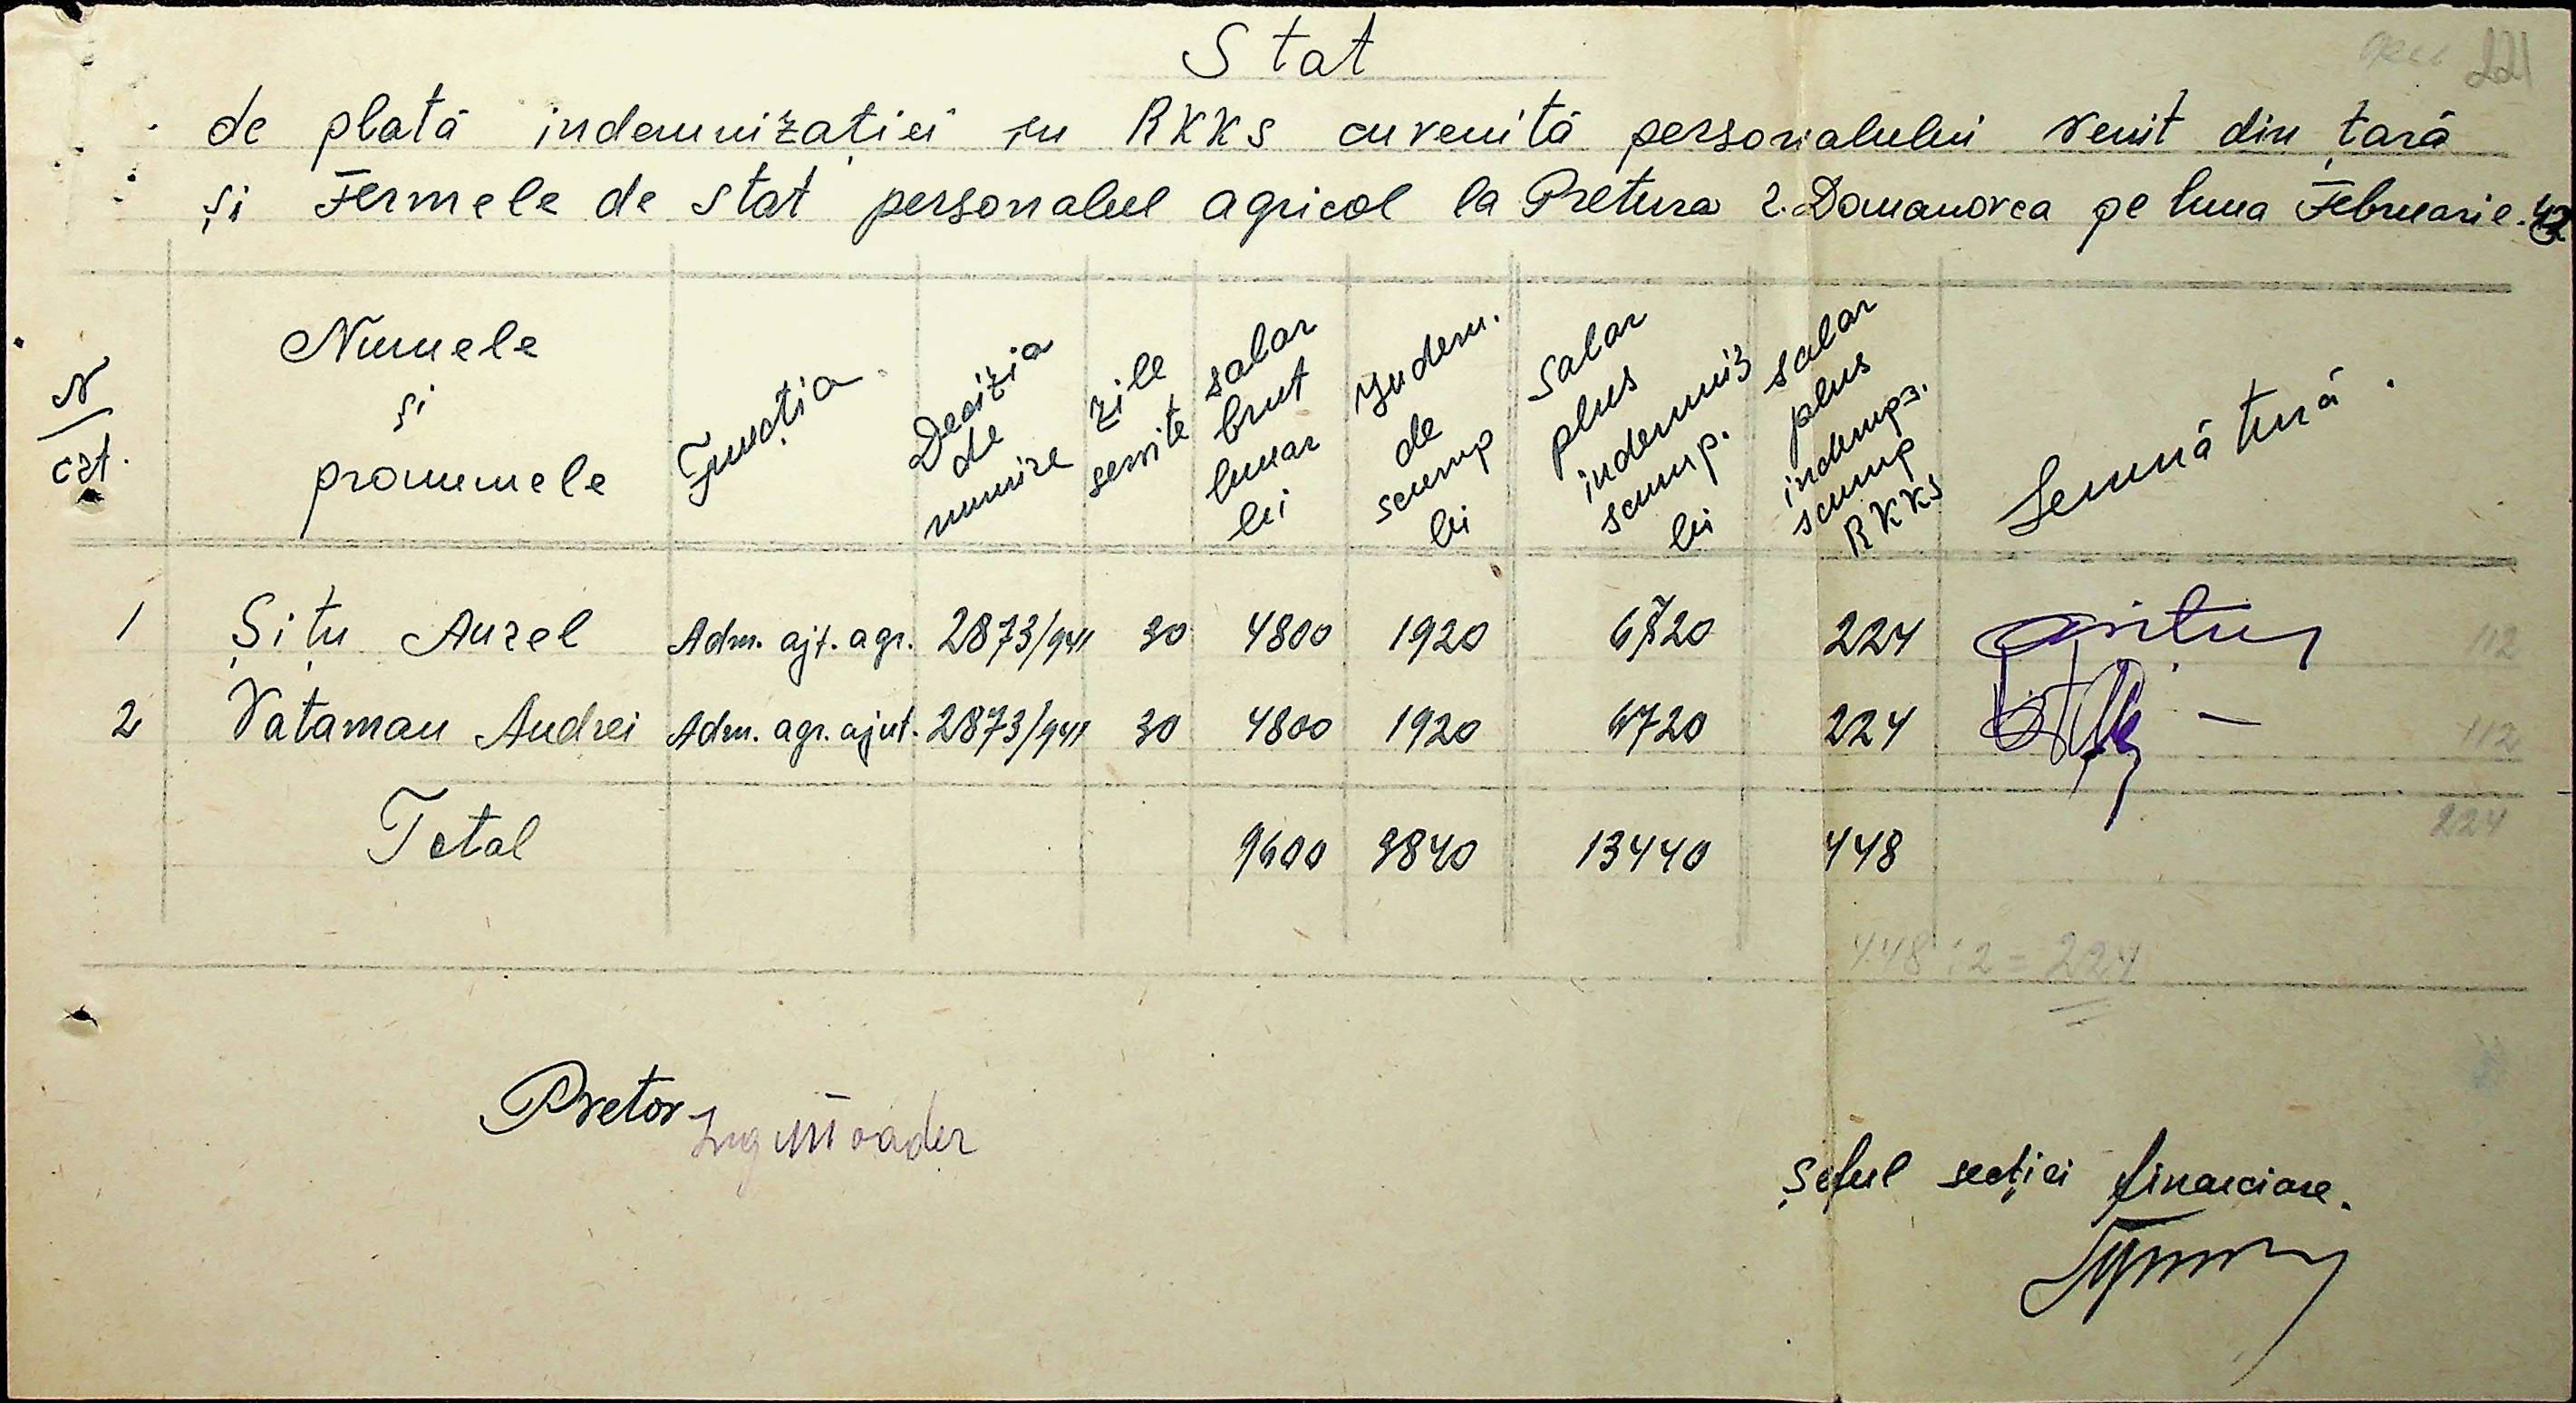 Stat
221
de plată indemnizației în RKKS cuvenită personalului venit din țară
și Fermele de Stat personalul agricol la Pretura r. Domanovca pe luna Februarie. 42
N/crt. Numele și pronumele Funcția Decizia de numire zile servite salar brut lunar lei Indem. de scump lei Salar plus indemniz scump. lei salar plus indemps. scump RKKS Semnătură.
1 Șițu Aurel Adm. ajt. agr. 2873/941 30 4800 1920 6720 224 112
2 Vataman Andrei Adm. agr. ajut. 2873/941 30 4800 1920 6720 224 112
Total 9600 3840 13440 448 224
448:2=224
Pretor Ing Moader
Șeful secției financiare.